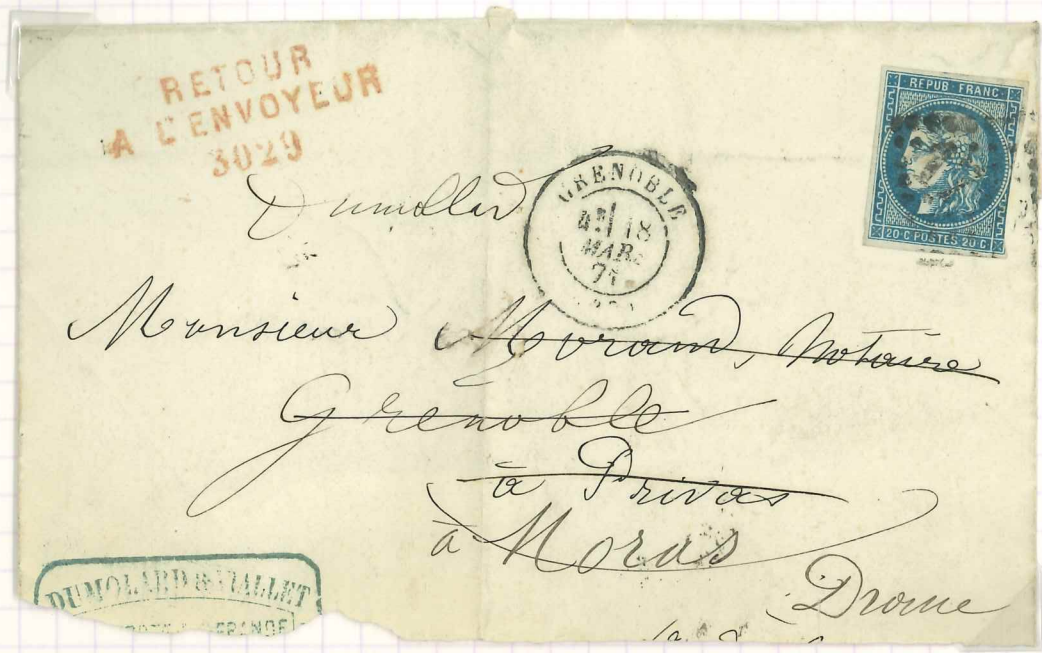 RETOUR
A L'ENVOYEUR
3029
REPUB. FRANC.
20 C POSTES 20 C
GRENOBLE
18
MARS
71
Dumollard
Monsieur Morand, Notaire
Grenoble
à Privas
à Moras
Drome
DUMOLARD & VIALLET